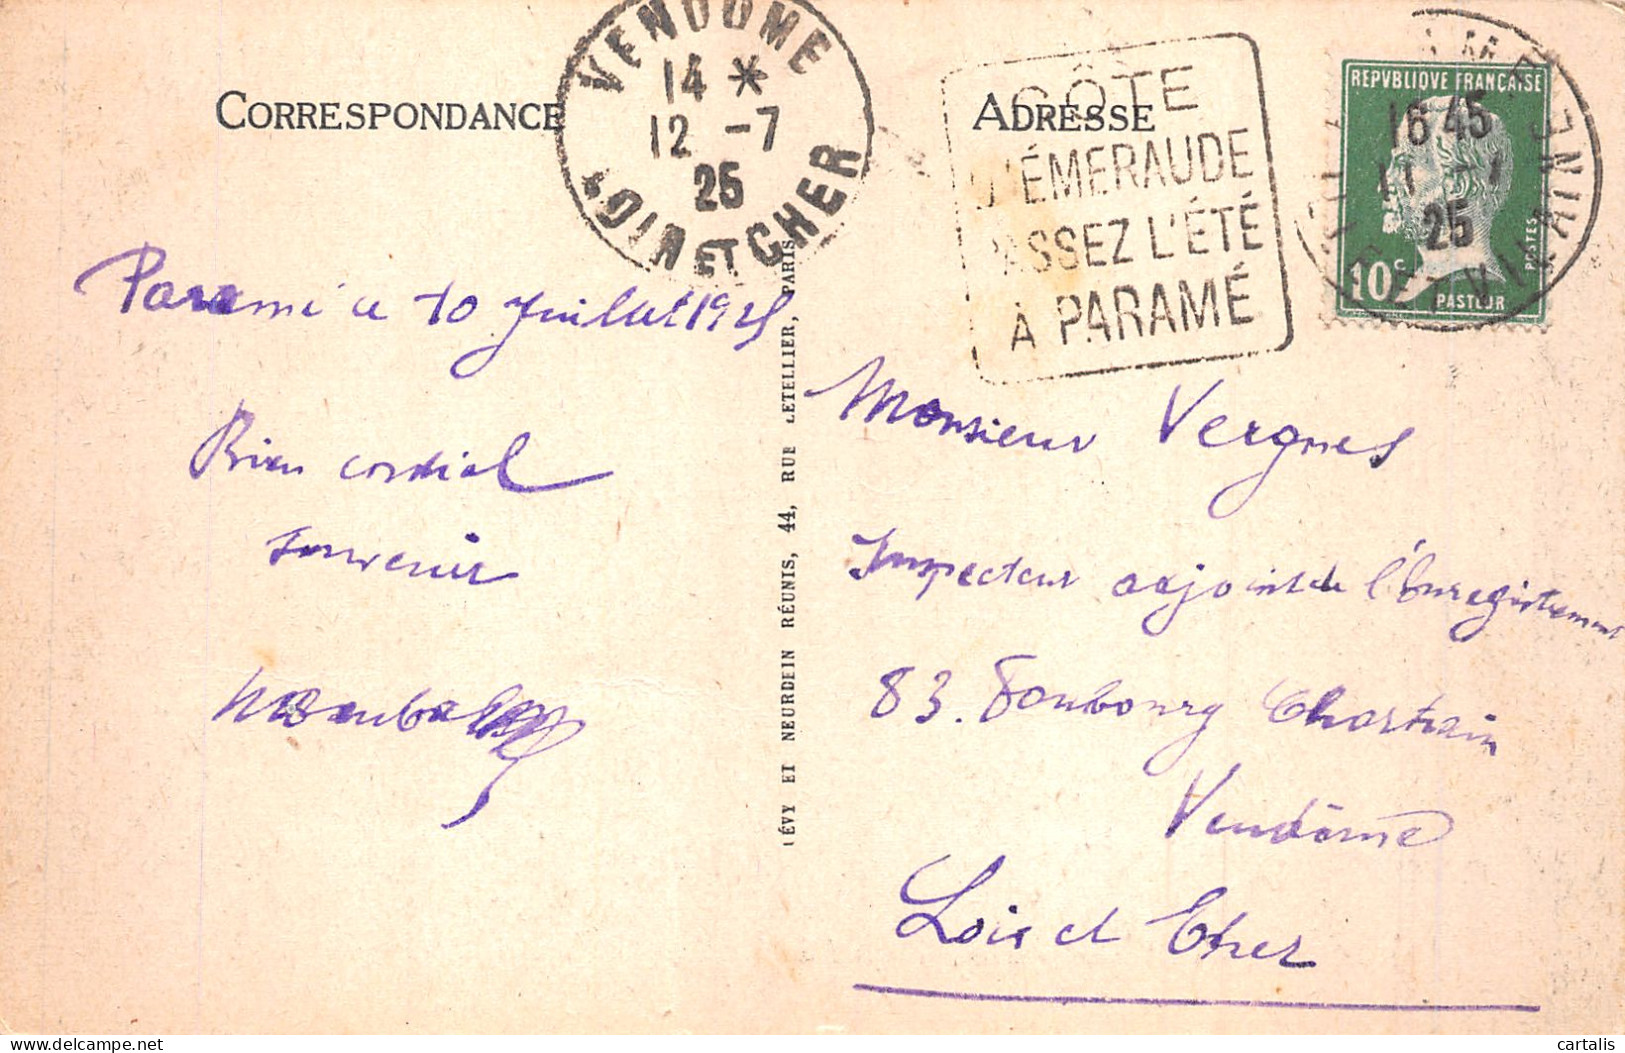 CORRESPONDANCE
VENDOME
14 *
12 -7
25
LOIR ET CHER
ADRESSE
CÔTE
D'ÉMERAUDE
PASSEZ L'ÉTÉ
À PARAMÉ
REPVBLIQVE FRANÇAISE
10c
POSTES
PASTEUR
16 45
11 -7
25
ILLE-ET-VILAINE
Paramé le 10 Juillet 1925
Bien cordial
souvenir
LÉVY ET NEURDEIN RÉUNIS, 44, RUE LETELLIER, PARIS
Monsieur Vergnes
Inspecteur adjoint de l'Enregistrement
83. Foubourg Chartrain
Vendôme
Loir et Cher
cartalis
delcampe.net